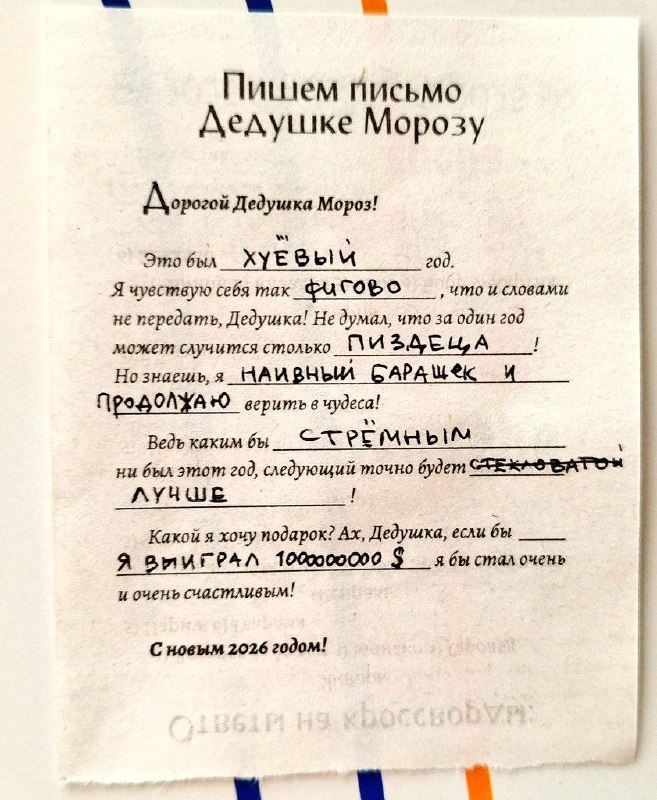 Пишем письмо
Дедушке Морозу
Дорогой Дедушка Мороз!
Это был ХУЁВЫЙ год.
Я чувствую себя так ФИГОВО, что и словами
не передать, Дедушка! Не думал, что за один год
может случится столько ПИЗДЕЦА!
Но знаешь, я НАИВНЫЙ БАРАШЕК И
ПРОДОЛЖАЮ верить в чудеса!
Ведь каким бы СТРЁМНЫМ
ни был этот год, следующий точно будет СТЕКЛОВАТОЙ
ЛУЧШЕ!
Какой я хочу подарок? Ах, Дедушка, если бы
Я ВЫИГРАЛ 1000000000 $ я бы стал очень
и очень счастливым!
С новым 2026 годом!
Ответы на кроссворды: